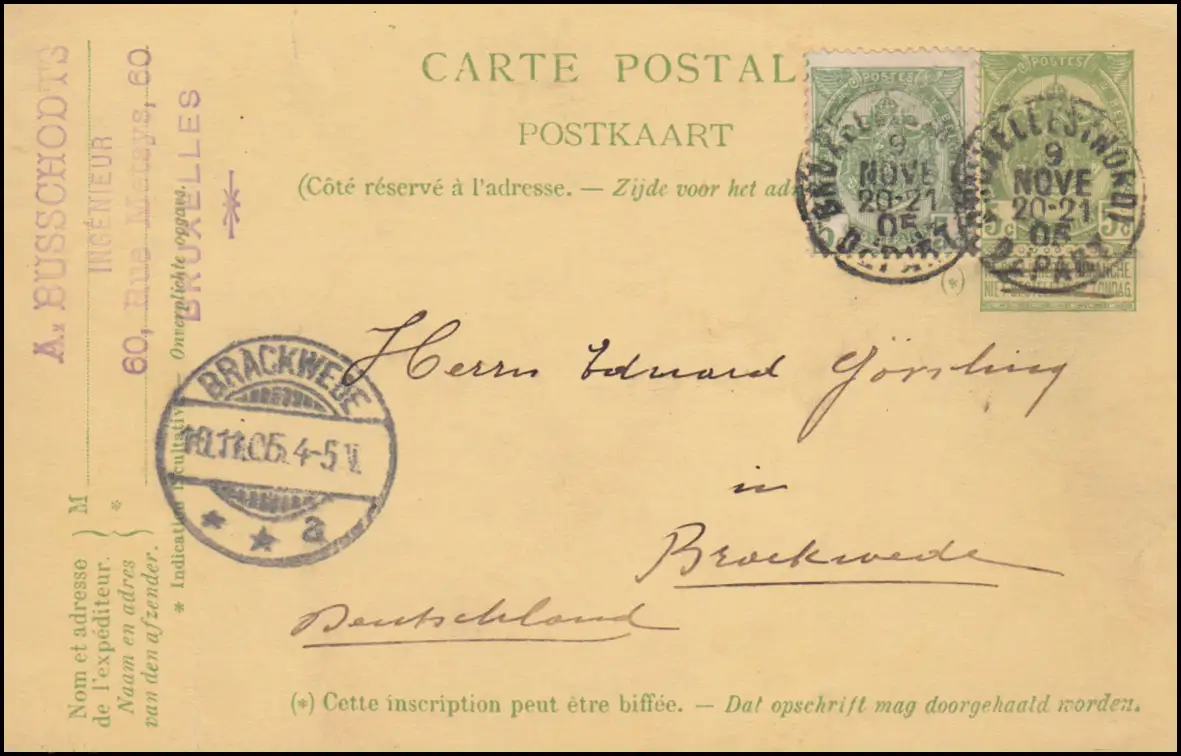 CARTE POSTAL
POSTKAART
(Côté réservé à l'adresse. — Zijde voor het ad
POSTES
BRUXELLES
9
NOVE
20-21
05
DEPART
POSTES
BRUXELLES (NORD)
9
NOVE
20-21
05
DEPART
5c
5c
(*)
NIET BESTELLEN OP ZONDAG
A. BUSSCHODTS
INGÉNIEUR
60, Rue Metsys, 60
BRUXELLES
M
*
Nom et adresse
de l'expéditeur.
Naam en adres
van den afzender.
* Indication facultative. — Onverplichte opgang.
BRACKWEDE
10.11.05. 4-5 V.
* * a
Herrn Eduard Görsling
in
Brackwede
Deutschland
(*) Cette inscription peut être biffée. — Dat opschrift mag doorgehaald worden.